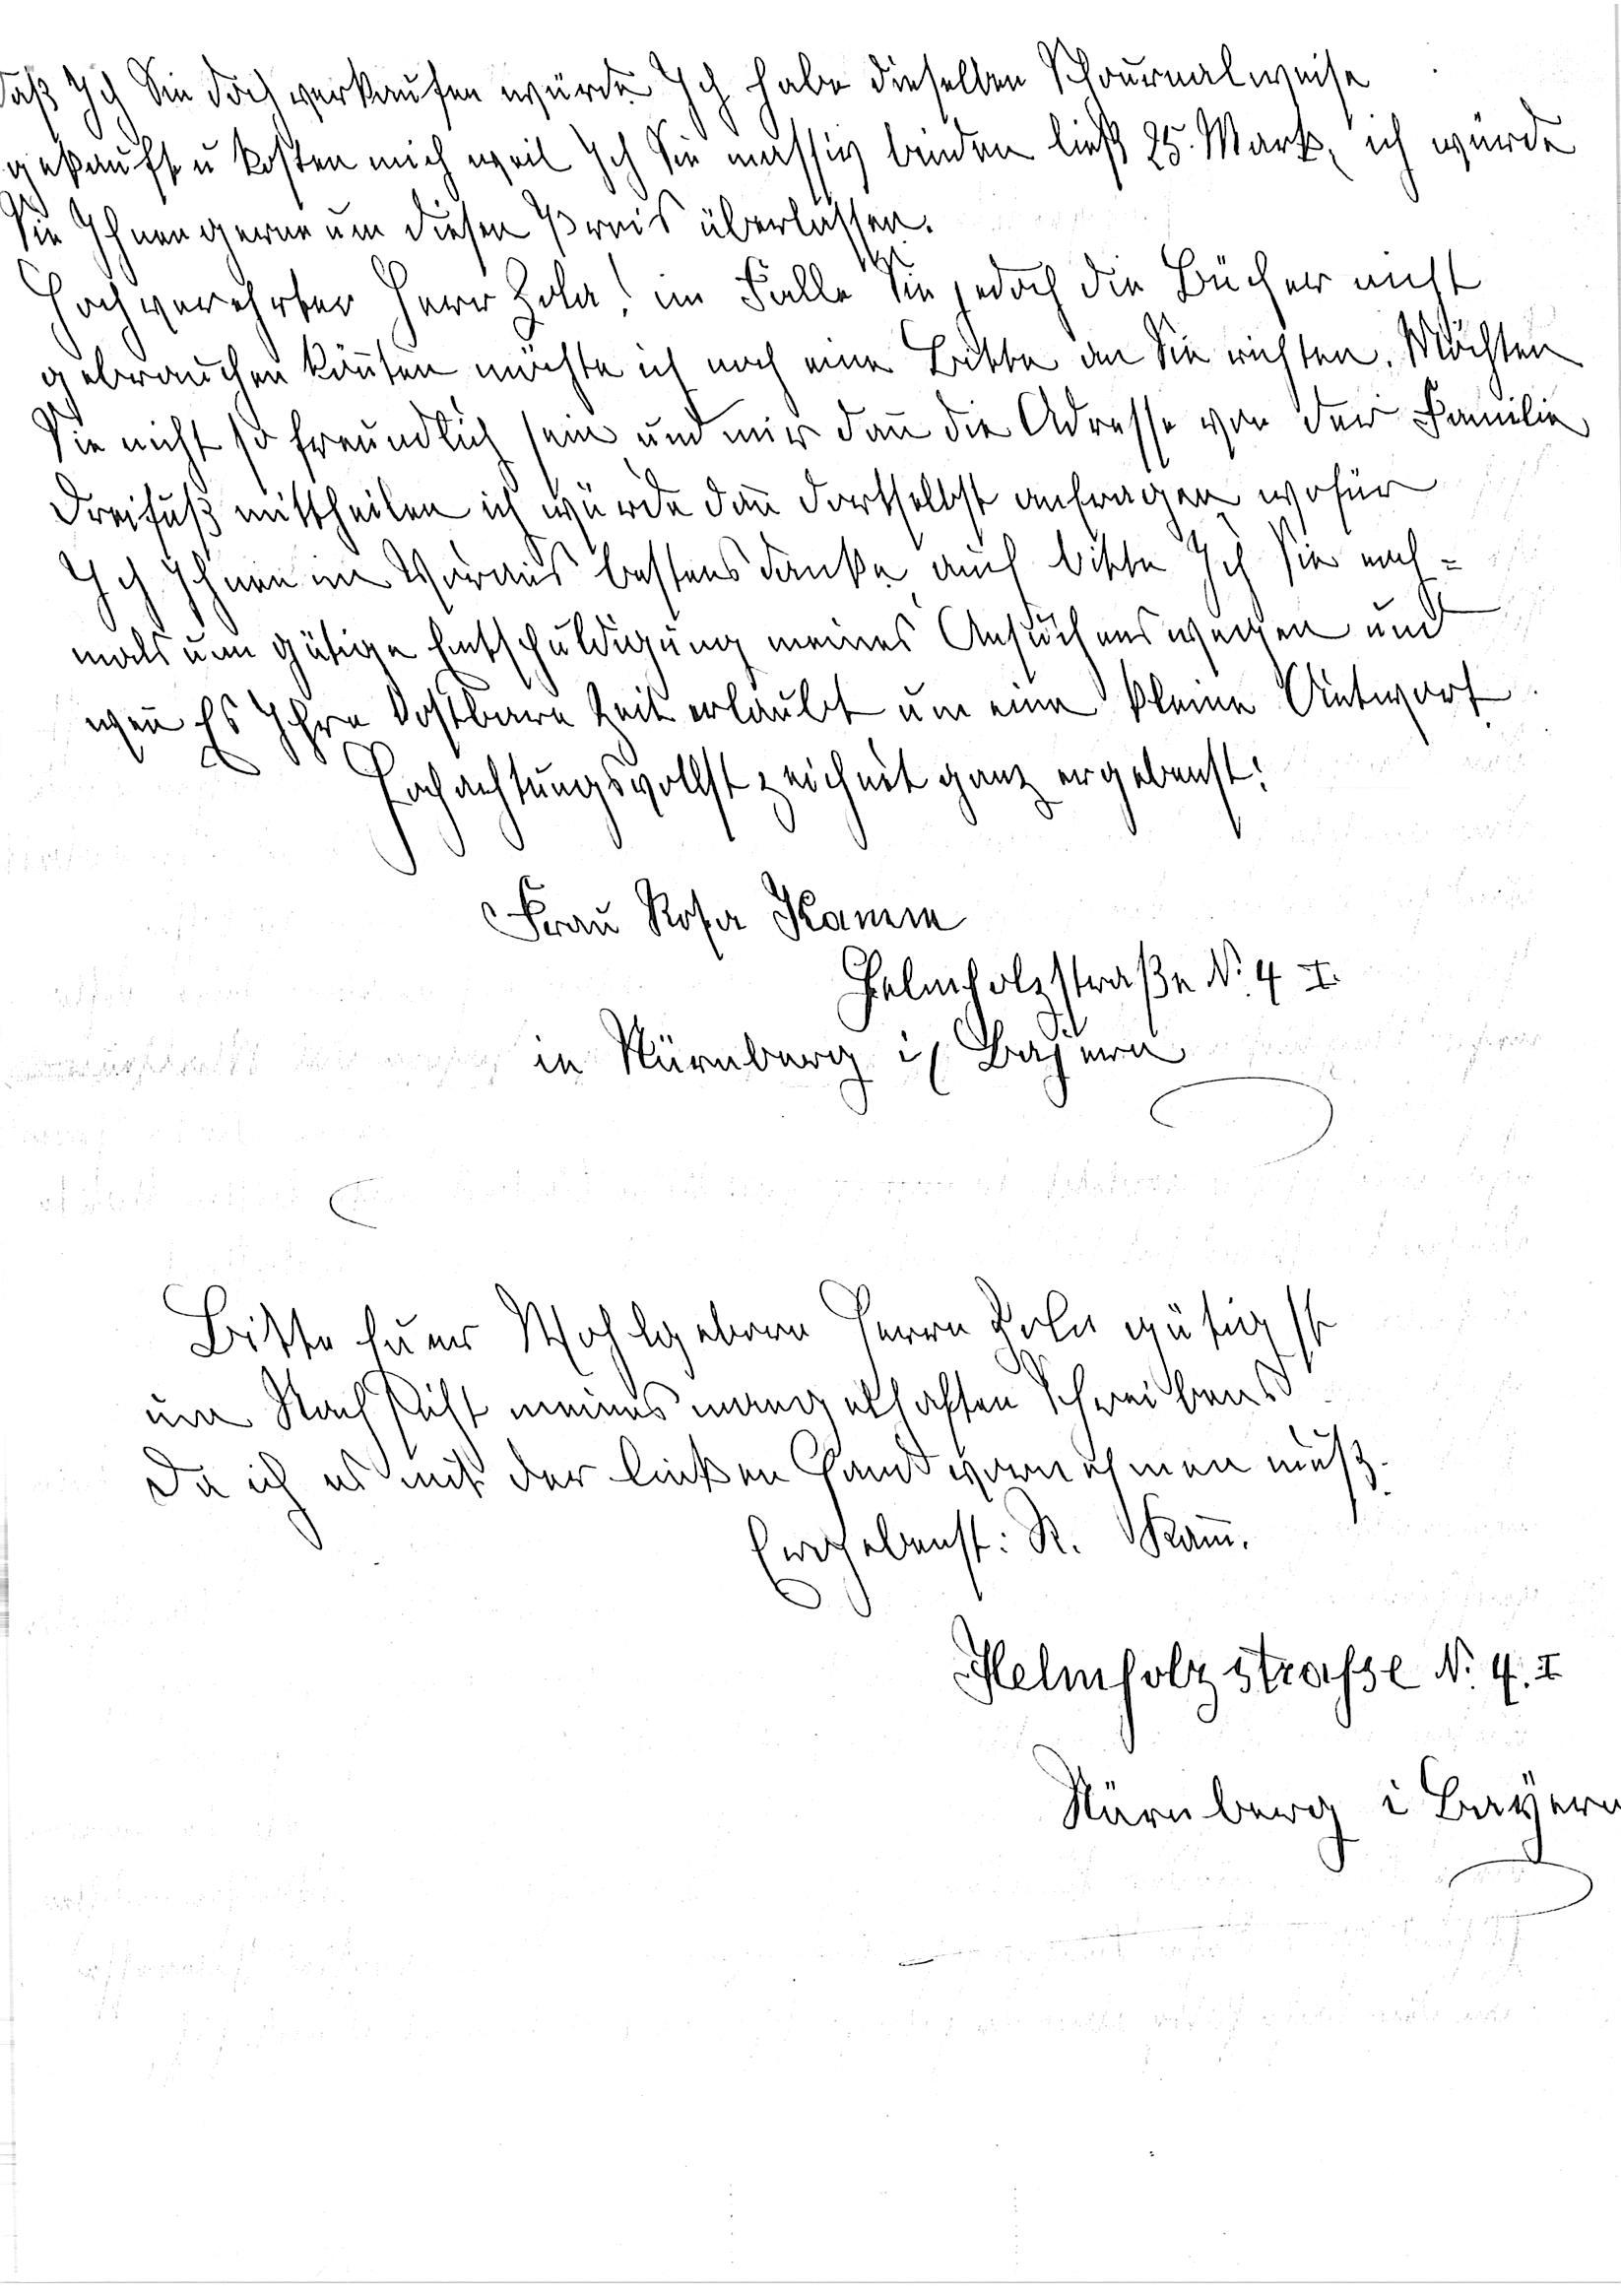 daß Ich Sie doch verkaufen würde Ich habe dieselben Schournalweise
gekauft u kosten mich weil Ich Sie massiv binden ließ 25. Mark, ich würde
Sie Ihnen gerne um diesen Preis überlassen.
Hochverehrter Herr Zola! im Falle Sie jedoch die Bücher nicht
gebrauchen köñten möchte ich noch eine Bitte an Sie richten. Möchten
Sie nicht so freundlich sein und mir dañ die Adresse von der Familie
Dreifuß mittheilen ich würde dañ dortselbst anfragen wofür
Ich Ihnen im Voraus bestens danke, auch bitte Ich Sie noch=
mals um gütige Entschuldigung meines Ansuchens wegen und
weñ Es Ihre kostbare Zeit erlaubt um eine kleine Antwort
Hochachtungsvollst zeichnet ganz ergebenst:
Frau Rosa Kamm
Helmholzstraße N: 4 I.
in Nürnberg i/ Bayern
Bitte Euer Wohlgeborn Herrn Zola gütigst
um Nachsicht meines mangelhaften Schreibens
da ich es mit der linken Hand vornehmen muß.
Ergebenst: R. Kam̃.
Helmholzstrasse N: 4. I
Nürnberg i Bayern